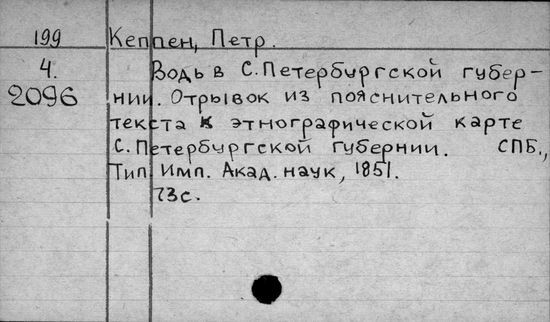 199 Кеппен, Петр.
4. Водь в С.Петербургской губер-
2096 нии. Отрывок из пояснительного
текста к этнографической карте
С.Петербургской губернии. СПБ.,
Тип. Имп. Акад. наук, 1851.
73с.